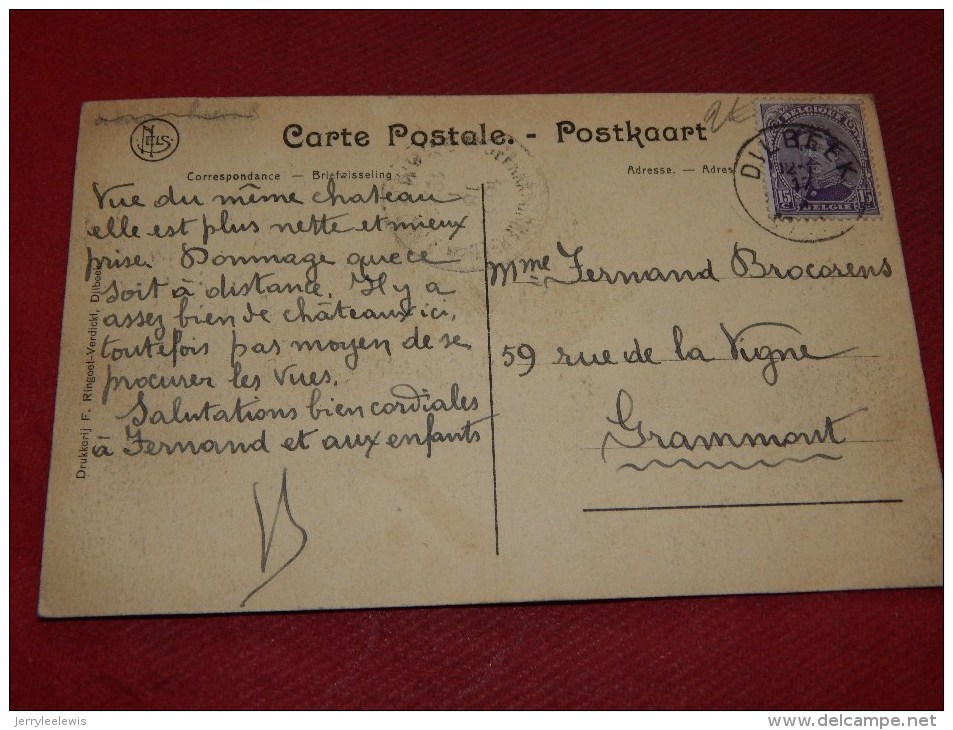 NELS
Carte Postale. - Postkaart
Correspondance — Briefwisseling
Adresse. — Adres
Vue du même chateau
elle est plus nette et mieux
prise. Dommage que ce
soit à distance. Il y a
assez bien de châteaux ici,
toutefois pas moyen de se
procurer les vues.
Salutations bien cordiales
à Fernand et aux enfants
Mme Fernand Brocorens
59 rue de la Vigne
Grammont
2€
BELGIQUE
15 15
BELGIE
DILBEEK
Drukkerij F. Ringoot-Verdickt, Dilbeek
jerryleelewis
http://www.delcampe.net